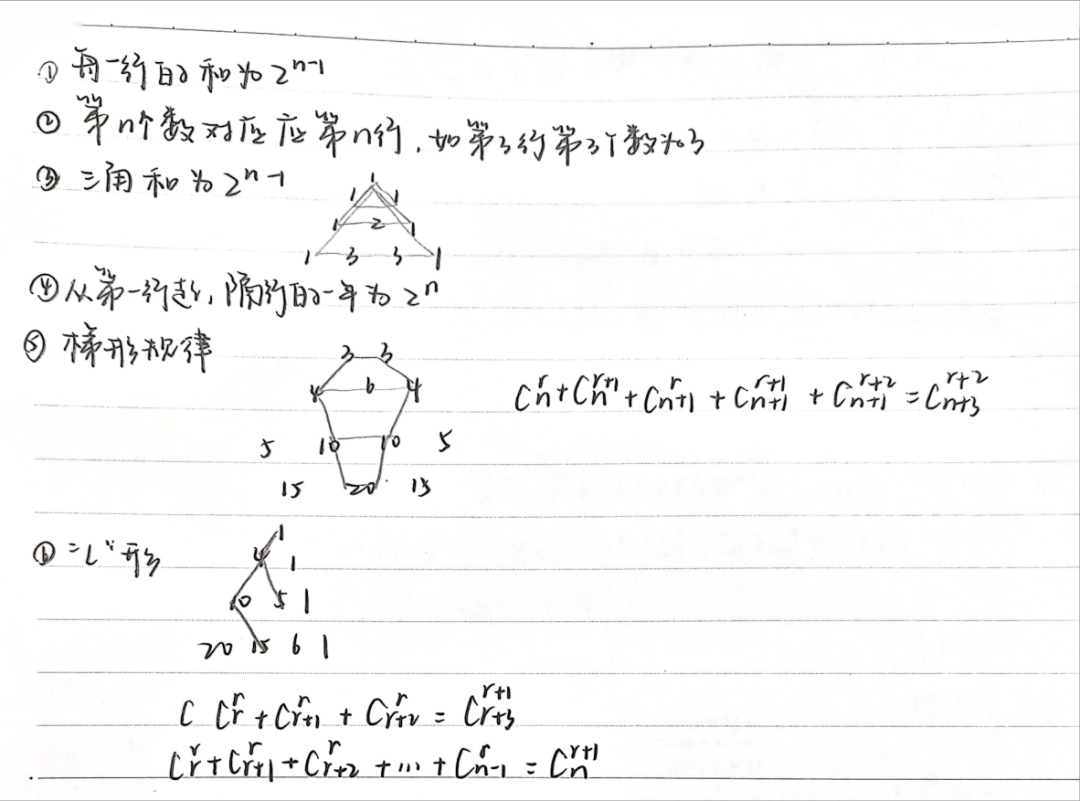 ① 每一行的和为 2ⁿ⁻¹
② 第n个数对应应第n行,如第3行第3个数为3
③ 三角和为 2ⁿ-1
1
1 1
1 2 1
1 3 3 1
④ 从第一行起,隔行的一年为 2ⁿ
⑤ 梯形规律
3 3
4 6 4
5 10 10 5
15 20 15
Cₙʳ+Cₙʳ⁺¹+Cₙ₊₁ʳ+Cₙ₊₁ʳ⁺¹+Cₙ₊₁ʳ⁺²=Cₙ₊₃ʳ⁺²
⑥ "L"形
1
4 1
10 5 1
20 15 6 1
C Cᵣʳ+Cᵣ₊₁ʳ+Cᵣ₊₂ʳ=Cᵣ₊₃ʳ⁺¹
Cᵣʳ+Cᵣ₊₁ʳ+Cᵣ₊₂ʳ+...+Cₙ₋₁ʳ=Cₙʳ⁺¹